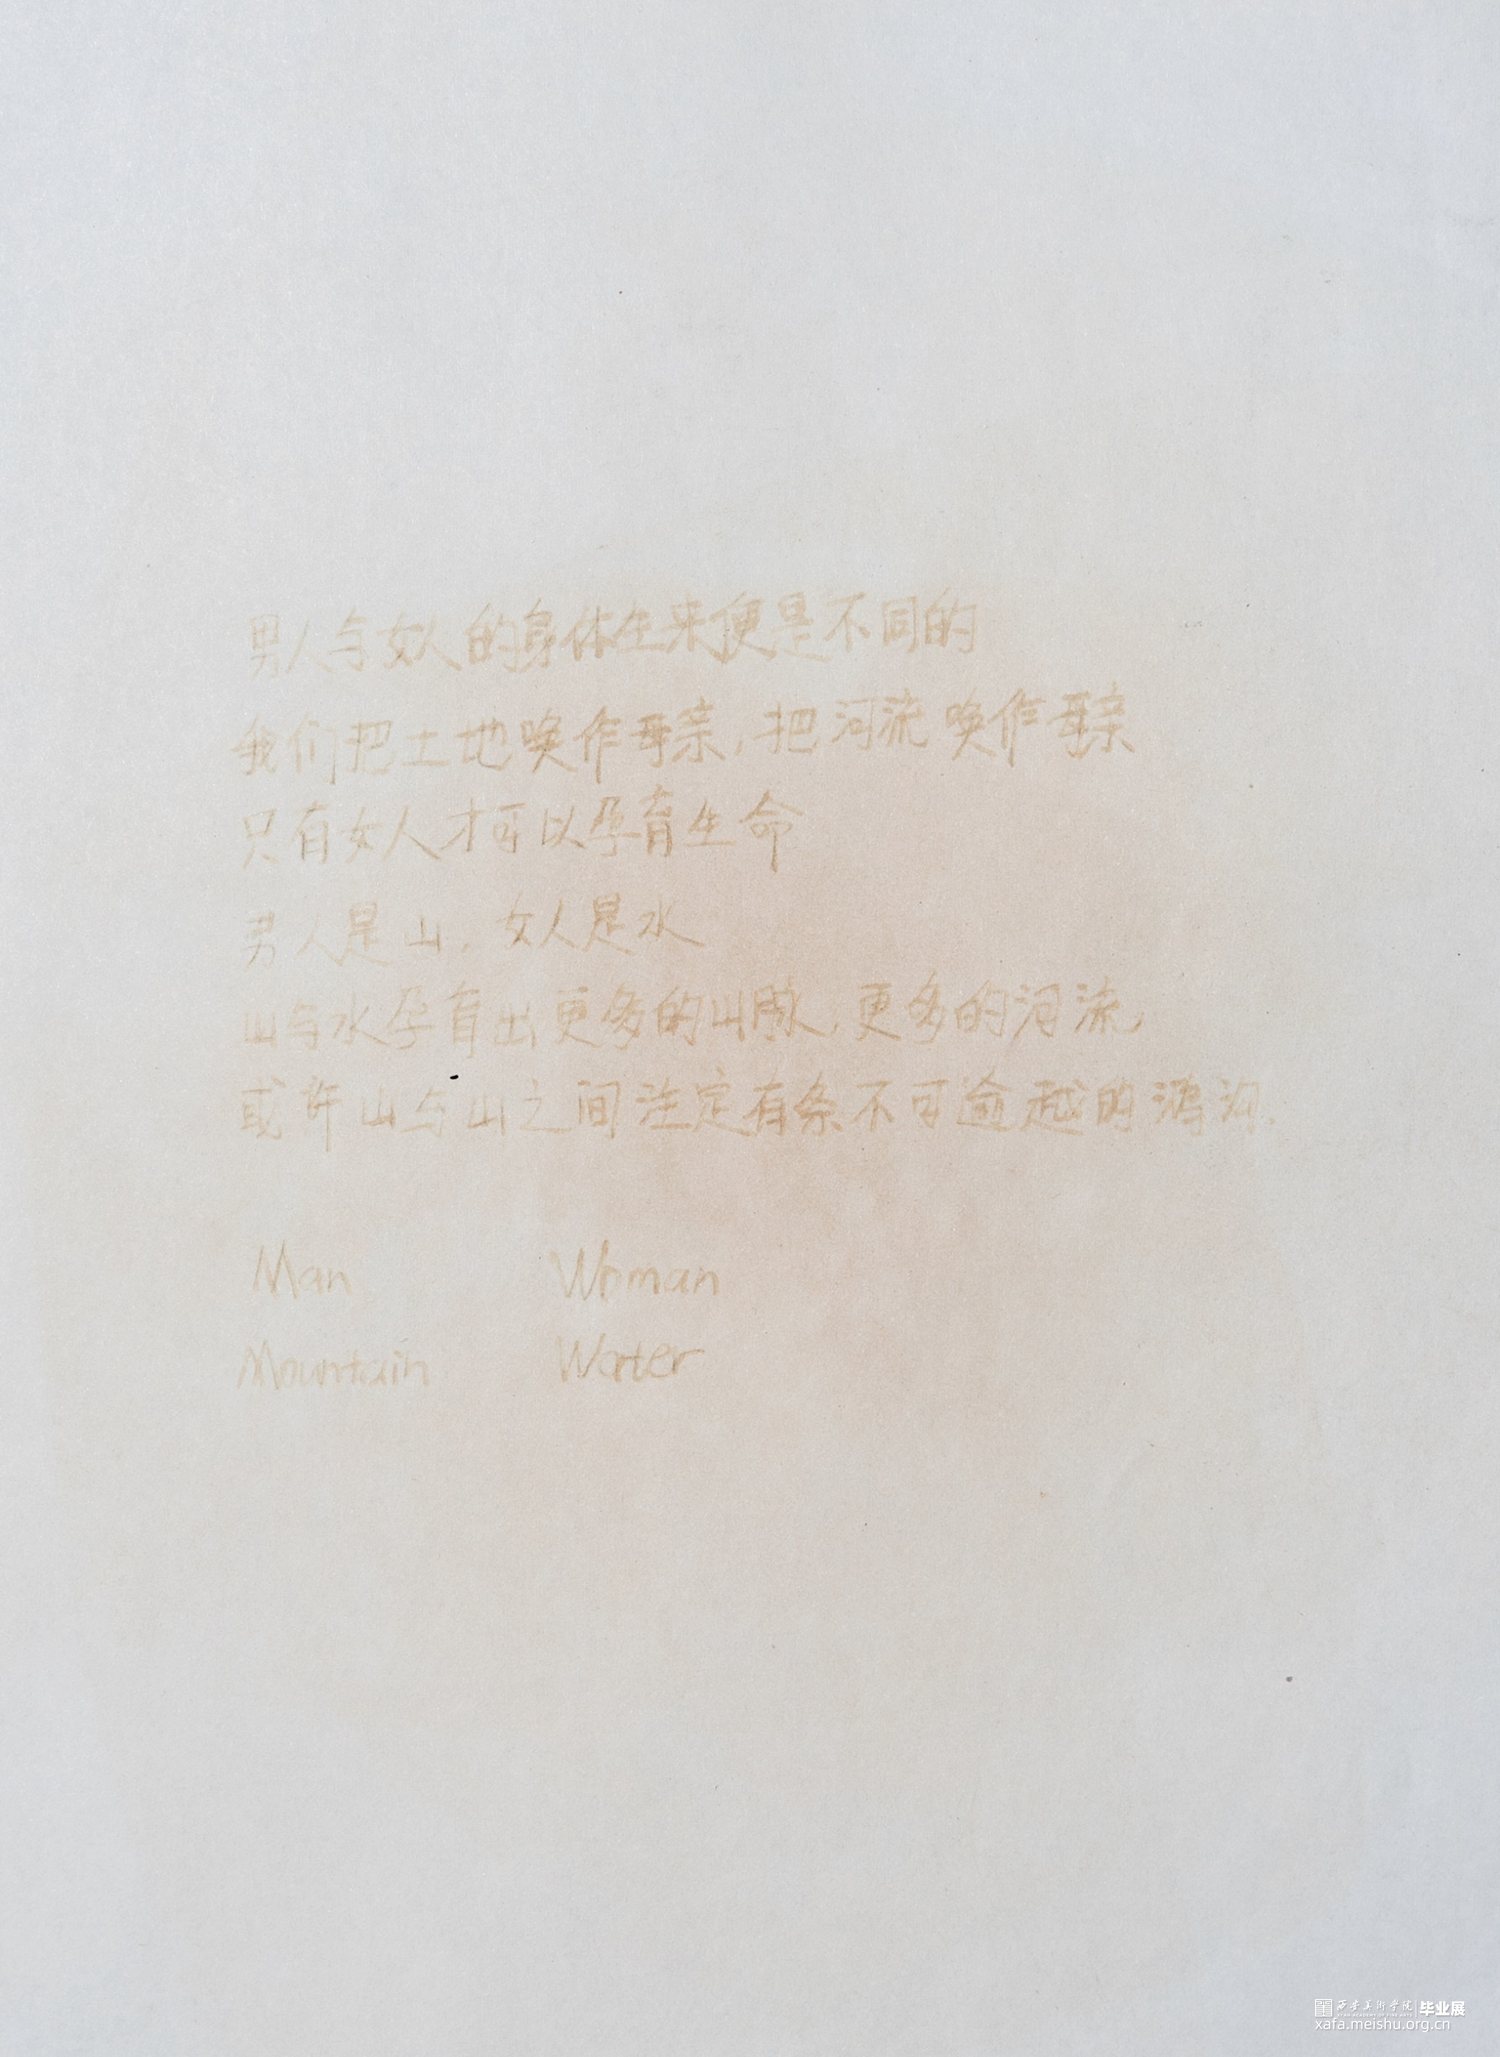 男人与女人的身体生来便是不同的
我们把土地唤作母亲，把河流唤作母亲
只有女人才可以孕育生命
男人是山，女人是水
山与水孕育出更多的山脉，更多的河流，
或许山与山之间注定有条不可逾越的鸿沟.
Man Woman
Mountain Water
西安美术学院 毕业展
xafa.meishu.org.cn